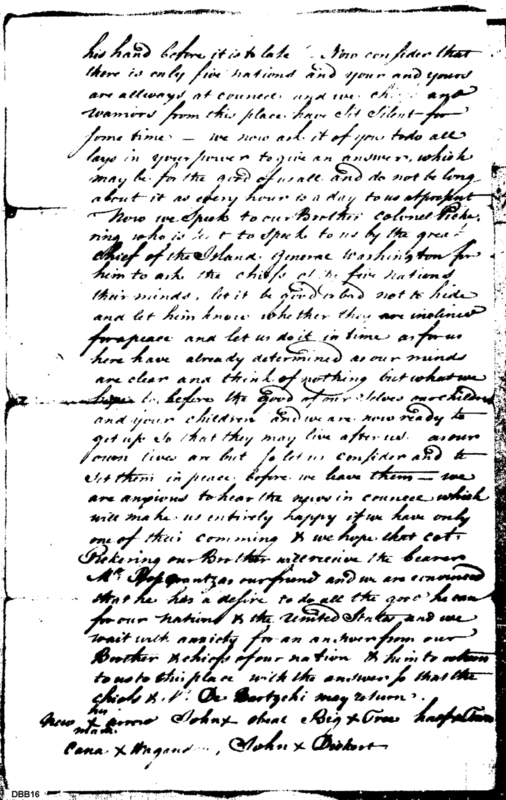 his hand before it is to late Now consider that
there is only five nations and your and yours
are allways at councel and we and
warriors from this place have Sit Silent for
some time – we now ask it of you todo all
lays in your power to give an answer, which
may be for the good of us all and do not be long
about it as every hour is a day to us at present
Now we Speak to our Brother Colonel Picke
ring who is to Speak to us by the great
Chief of the Island General Washington for
him to ask the chiefs of the five nations
their minds, let it be good or bad not to hide
and let him know whether they are inclined
for a peace and let us do it in time as for us
here have already determined as our minds
are clear and think of nothing but what we
before the good of our Selves our children
and your children and we are now ready to
get up So that they may live after us as our
own lives are but So let us consider and to
Set them in peace before we leave them – we
are anxious to hear the news in councel which
will make us entirely happy if we have only
one of their comming & we hope that Col.
Pickering our Brother will receive the bearer
Mr. as our friend and we are convinced
that he has a desire to do all the good he can
for our nation & the United States and we
wait with for an answer from our
Brother & chiefs of our nation & him to return
to us to this place with the answer so that the
chiefs & De may return.
his
New x arrow John x obeal Big x Tree half x Town
mark
Cana x John x
DBB16